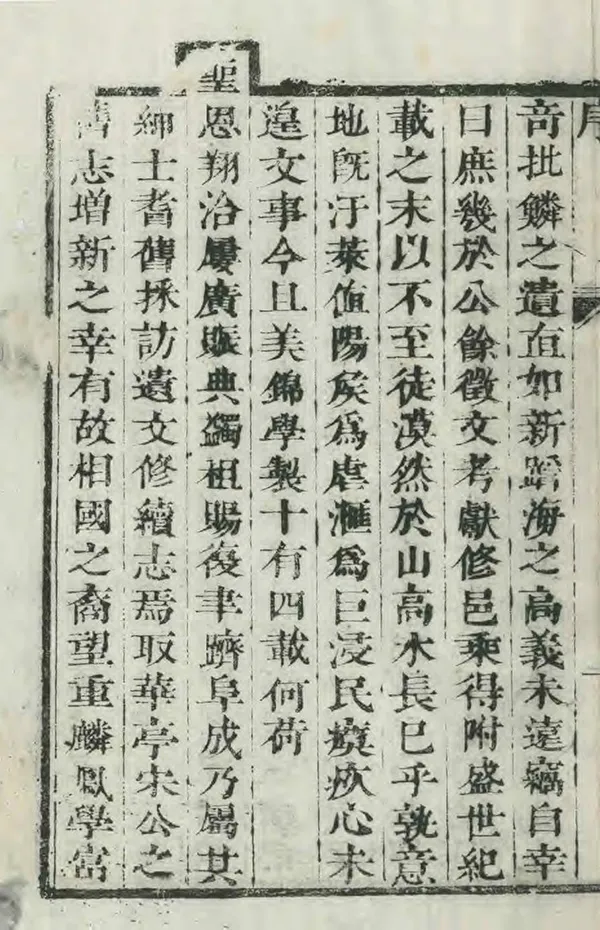 序
竒批鱗之遺直如新蹈海之高義未遠竊自幸
曰庶幾於公餘徵文考獻修邑乘得附盛世紀
載之末以不至徒漠然於山高水長已乎孰意
地旣汙萊値陽矦為虐滙為巨浸民瘼疚心未
遑文事今且美錦學製十有四載何荷
聖恩翔洽屢廣賑典蠲租賜復聿躋阜成乃屬其
紳士耆舊採訪遺文修續志焉取華亭宋公之
舊志增新之幸有故相國之裔望重麟鳳學富